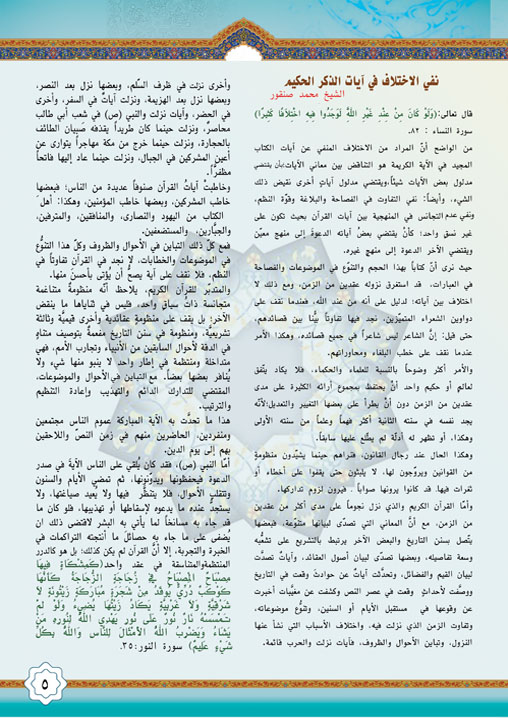 نفي الاختلاف في آيات الذكر الحكيم
الشيخ محمد صنقور
قال تعالى: (وَلَوْ كَانَ مِنْ عِنْدِ غَيْرِ اللَّهِ لَوَجَدُوا فِيهِ اخْتِلَافًا كَثِيرًا)
سورة النساء : ٨٢.
من الواضح أنَّ المراد من الاختلاف المنفي عن آيات الكتاب
المجيد في الآية الكريمة هو التناقض بين معاني الآيات بأن يقتضي
مدلول بعض الآيات شيئاً، ويقتضي مدلول آياتٍ أخرى نقيض ذلك
الشيء، وأيضاً: نفي التفاوت في الفصاحة والبلاغة وقوَّة النظم،
ونفي عدم التجانس في المنهجية بين آيات القرآن بحيث تكون على
غير نسق واحد؛ كأنْ يقتضي بعضُ آياته الدعوةَ إلى منهج معيَّن
ويقتضي الآخر الدعوة إلى منهج غيره.
حيث نرى أنَّ كتاباً بهذا الحجم والتنوُّع في الموضوعات والفصاحة
في العبارات، قد استغرق نزوله عقدين من الزمن، ومع ذلك لا
اختلاف بين آياته؛ لدليل على أنه من عند الله، فعندما نقف على
دواوين الشعراء المتميِّزين، نجد فيها تفاوتاً بيِّناً بين قصائدهم،
حتى قيل: إنَّ الشاعر ليس شاعراً في جميع قصائده، وهكذا الأمر
عندما نقف على خطب البلغاء ومحاوراتهم.
والأمر أكثر وضوحاً بالنسبة للعلماء والحكماء، فلا يكاد يتَّفق
لعالمٍ أو حكيم واحد أنْ يحتفظ بمجموع آرائه الكثيرة على مدى
عقدين من الزمن دون أنْ يطرأ على بعضها التغيير والتعديل؛ لأنَّه
يجد نفسه في سنته الثانية أكثر فهماً وعلماً من سنته الأولى
وهكذا، أو تظهر له أدلَّة لم يطَّلع عليها سابقاً.
وهكذا الحال عند رجال القانون، فتراهم حينما يشيِّدون منظومةً
من القوانين ويروِّجون لها، لا يلبثون حتى يقفوا على أخطاء أو
ثغرات فيها، قد كانوا يرونها صواباً ، فيرون لزوم تداركها.
وأمَّا القرآن الكريم والذي نزل نجوماً على مدى أكثر من عقدين
من الزمن، مع أنَّ المعاني التي تصدَّى لبيانها متنوِّعة، فبعضها
يتَّصل بسنن التاريخ والبعض الآخر يرتبط بالتشريع على تشعُّبه
وسعة تفاصيله، وبعضها تصدَّى لبيان أصول العقائد، وآياتٌ تصدَّت
لبيان القيم والفضائل، وتحدَّثت آياتٌ عن حوادثَ وقعت في التاريخ
ووصفَت لأحداثٍ وقعت في عصر النص وكشفت عن مغيَّبات أخبرت
عن وقوعها في مستقبل الأيام أو السنين، وتنوُّع موضوعاته،
وتفاوت الزمن الذي نزلت فيه، واختلاف الأسباب التي نشأ عنها
النزول، وتباين الأحوال والظروف، فآيات نزلت والحرب قائمة،
وأخرى نزلت في ظرف السِّلم، وبعضها نزل بعد النصر،
وبعضها نزل بعد الهزيمة، ونزلت آياتٌ في السفر، وأخرى
في الحضر، وآيات نزلت والنبي (ص) في شعب أبي طالب
محاصرٌ، ونزلت حينما كان طريداً يقذفه صبيان الطائف
بالحجارة، ونزلت حينما خرج من مكة مهاجراً يتوارى عن
أعين المشركين في الجبال، ونزلت حينما عاد إليها فاتحاً
مظفَّراً.
وخاطبتْ آياتُ القرآن صنوفاً عديدة من الناس؛ فبعضها
خاطب المشركين، وبعضها خاطب المؤمنين، وهكذا: أهل
الكتاب من اليهود والنصارى، والمنافقين، والمترفين،
والجبَّارين، والمستضعفين.
فمع كلِّ ذلك التباين في الأحوال والظروف وكلِّ هذا التنوُّع
في الموضوعات والخطابات، لا نجد في القرآن تفاوتاً في
النظم، فلا نقف على آية يصحُّ أن يُؤتى بأحسنَ منها.
والمتدبِّر للقرآن الكريم، يلاحظ أنَّه منظومةٌ متناغمة
متجانسة ذاتُ سياقٍ واحد، فليس في ثناياها ما ينقض
الآخر؛ بل يقف على منظومةٍ عقائدية وأخرى قيميَّة وثالثة
تشريعيَّة، ومنظومة في سنن التاريخ مفعمةٌ بتوصيف متناهٍ
في الدقة لأحوال السابقين من الأنبياء وتجارب الأمم، فهي
متداخلة ومنتظمة في إطار واحد لا ينبو منها شيء ولا
يُنافر بعضها بعضاً. مع التباين في الأحوال والموضوعات،
المقتضي للتدارك الدائم والتهذيب وإعادة التنظيم
والترتيب.
هذا ما تحدَّت به الآية المباركة عموم الناس مجتمعين
ومنفردين، الحاضرين منهم في زمن النصّ واللاحقين
بهم إلى يوم الدين.
أمّا النبي (ص)، فقد كان يُلقي على الناس الآيةَ في صدر
الدعوة فيحفظونها ويدوِّنونها، ثم تمضي الأيام والسنون
وتتقلب الأحوال، فلا يتنظَّر فيها ولا يعيد صياغتها، ولا
يستجدُّ عنده ما يدعوه لإسقاطها أو تهذيبها، فلو كان ما
قد جاء به مسانخاً لما يأتي به البشر لاقتضى ذلك ان
يُضفى على ما جاء به حصائلُ ما أنتجته التراكمات في
الخبرة والتجربة، إلا أنَّ القرآن لم يكن كذلك؛ بل هو كالدرر
المنتظمة والمتناسقة في عقد واحد (كَمِشْكَاةٍ فِيهَا
مِصْبَاحٌ الْمِصْبَاحُ فِي زُجَاجَةٍ الزُّجَاجَةُ كَأَنَّهَا
كَوْكَبٌ دُرِّيٌّ يُوقَدُ مِنْ شَجَرَةٍ مُبَارَكَةٍ زَيْتُونَةٍ لَا
شَرْقِيَّةٍ وَلَا غَرْبِيَّةٍ يَكَادُ زَيْتُهَا يُضِيءُ وَلَوْ لَمْ
تَمْسَسْهُ نَارٌ نُورٌ عَلَى نُورٍ يَهْدِي اللَّهُ لِنُورِهِ مَنْ
يَشَاءُ وَيَضْرِبُ اللَّهُ الْأَمْثَالَ لِلنَّاسِ وَاللَّهُ بِكُلِّ
شَيْءٍ عَلِيمٌ) سورة النور: ٣٥.
٥